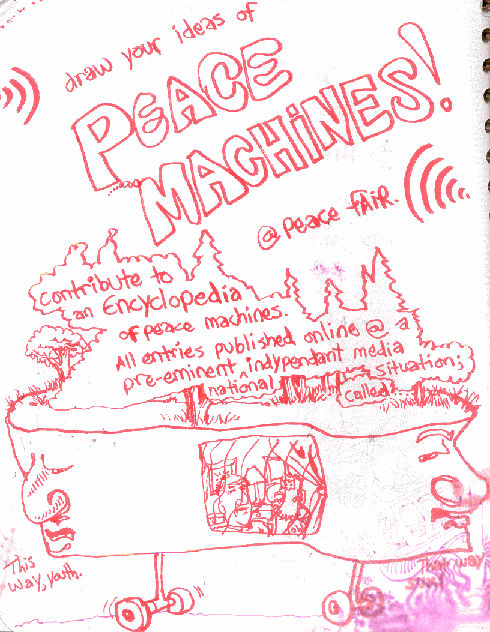 draw your ideas of
PEACE
MACHINES!
@ peace fAiR.
contribute to
an ENcyclopedia
of peace machines.
All entries published online @ a
pre-eminent indypendant media
national situation;
called:..
This
way, youth.
That way